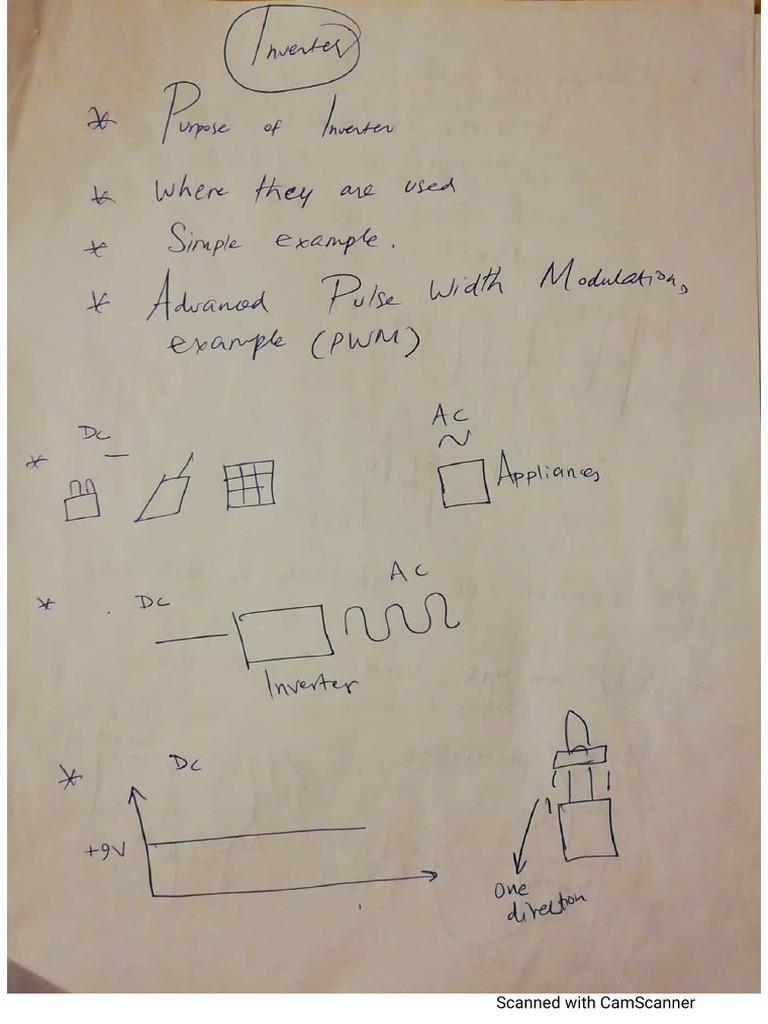 Inverter
* Purpose of Inverter
* Where they are used
* Simple example.
* Advanced Pulse Width Modulation,
example (PWM)
AC
* DC
Appliances
AC
* DC
Inverter
* DC
+9V
One
direction
Scanned with CamScanner